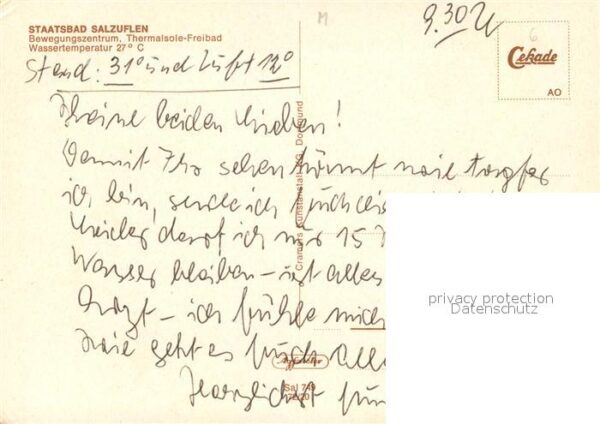 STAATSBAD SALZUFLEN
Bewegungszentrum, Thermalsole-Freibad
Wassertemperatur 27° C
Stand: 31° und Luft 12°
M
9.30 U
6
Cekade
AO
Meine beiden Lieben!
Damit Ihr sehen könnt wie tapfer
ich bin, sende ich Euch
Leider darf ich nur 15
Wasser bleiben – ist alles
Arzt – ich fühle mich
Wie geht es Euch
Herzlichst
Cramers Kunstanstalt KG, Dortmund
Sal 749
privacy protection
Datenschutz